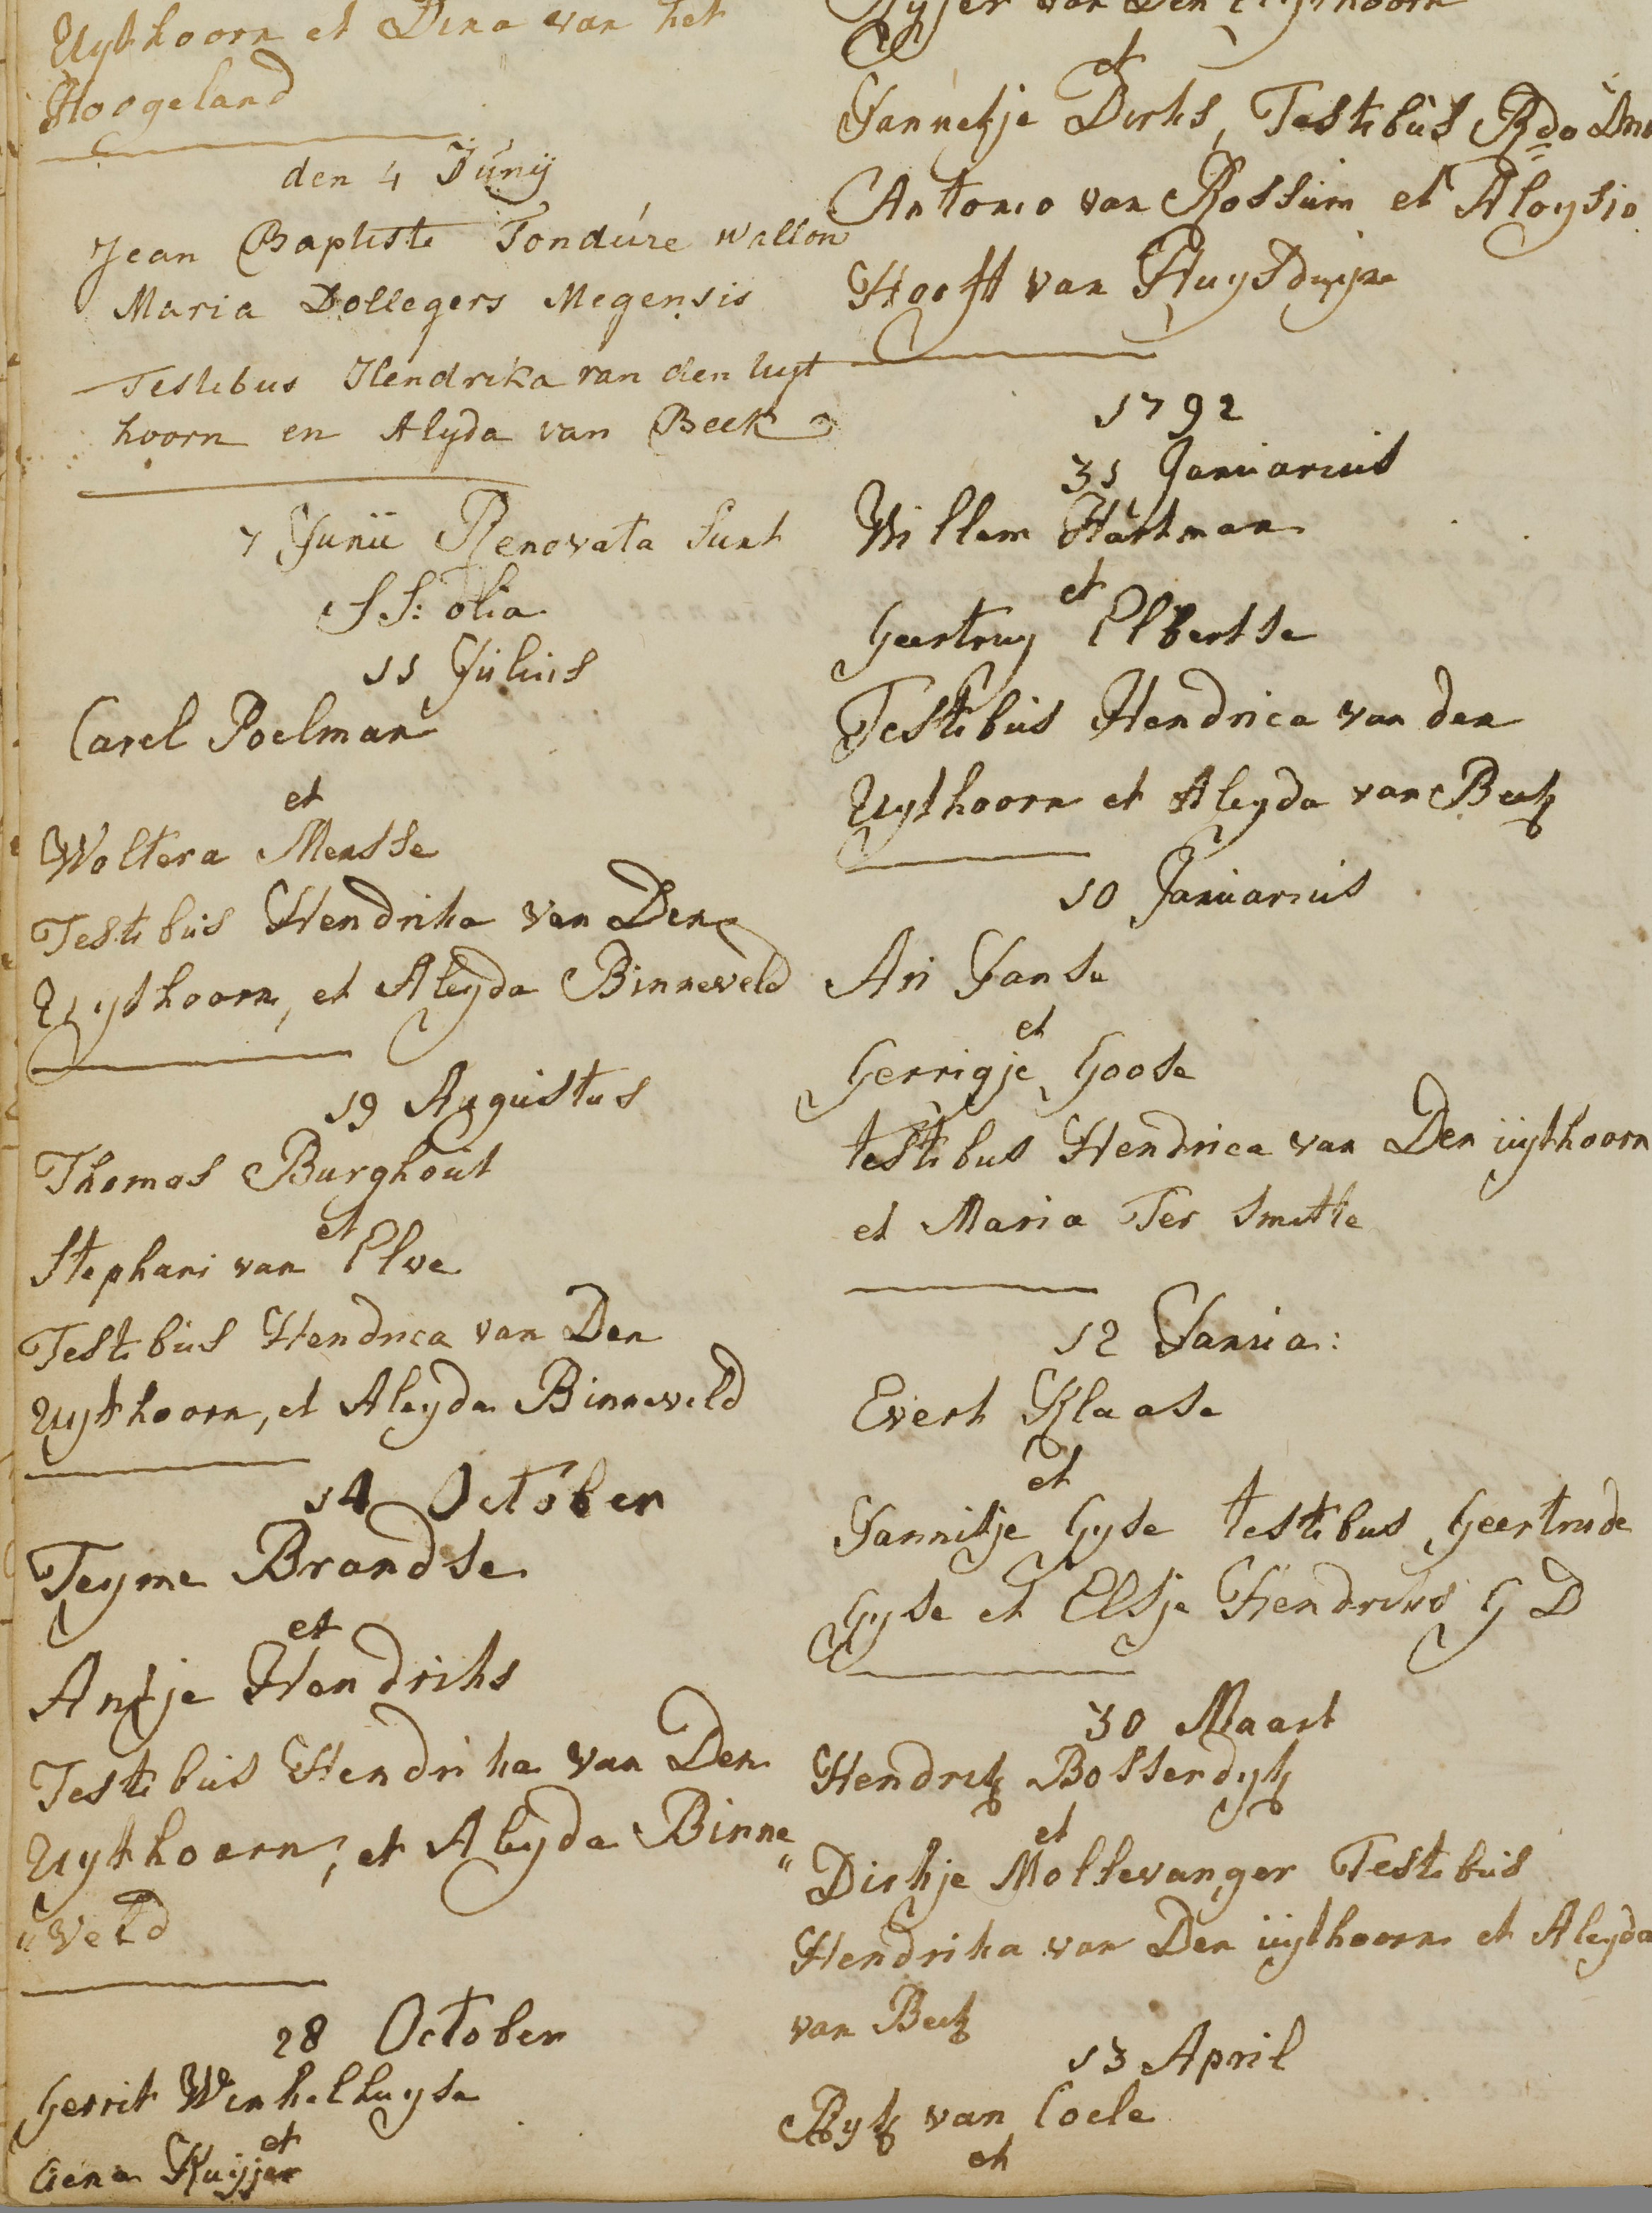 Uythoorn et Dina van het
Hoogeland
den 4 Junij
Jean Baptiste Tondúre wallon
Maria Dollegers Megensis
Testibus Hendrika van den uyt
hoorn en Alyda van Beek
7 Junii Renovata sunt
SS: olia
11 Julius
Carel Poelman
et
Woltera Mensse
Testibus Hendrika van Den
Uythoorn, et Aleyda Binneveld
19 Augustus
Thomas Burghout
et
Stephani van Elve
Testibus Hendrica van Den
Uythoorn, et Aleyda Binneveld
14 October
Teyme Brandse
et
Antje Hendriks
Testibus Hendrika van Den
Uythoorn, et Aleyda Binne„
„veld
28 October
Gerrit Winkelhuyse
et
Kuyjer
van Den Uythoorn
et
Jannetje Dirks, Testibus Rdo Dno
Antonio van Rossum et Aloysio
Hooft van Huysduyne
1792
31 Januarius
Willem Hartman
et
Geertruy Elbertse
Testibus Hendrica van den
Uythoorn et Aleyda van Beek
10 Januarius
Ari Janse
et
Gerrigje Goose
testibus Hendrica van Den uythoorn
et Maria Ter Smitte
12 Janua:
Evert Klaase
et
Jannitje Gyse testibus Geertrude
Gyse et Elsje Hendriks G D
30 Maart
Hendrik Bosserdyk
et
Dirkje Mollevanger Testibus
Hendrika van Den uythoorn et Aleyda
van Beek
13 April
Ryk van Coele
et